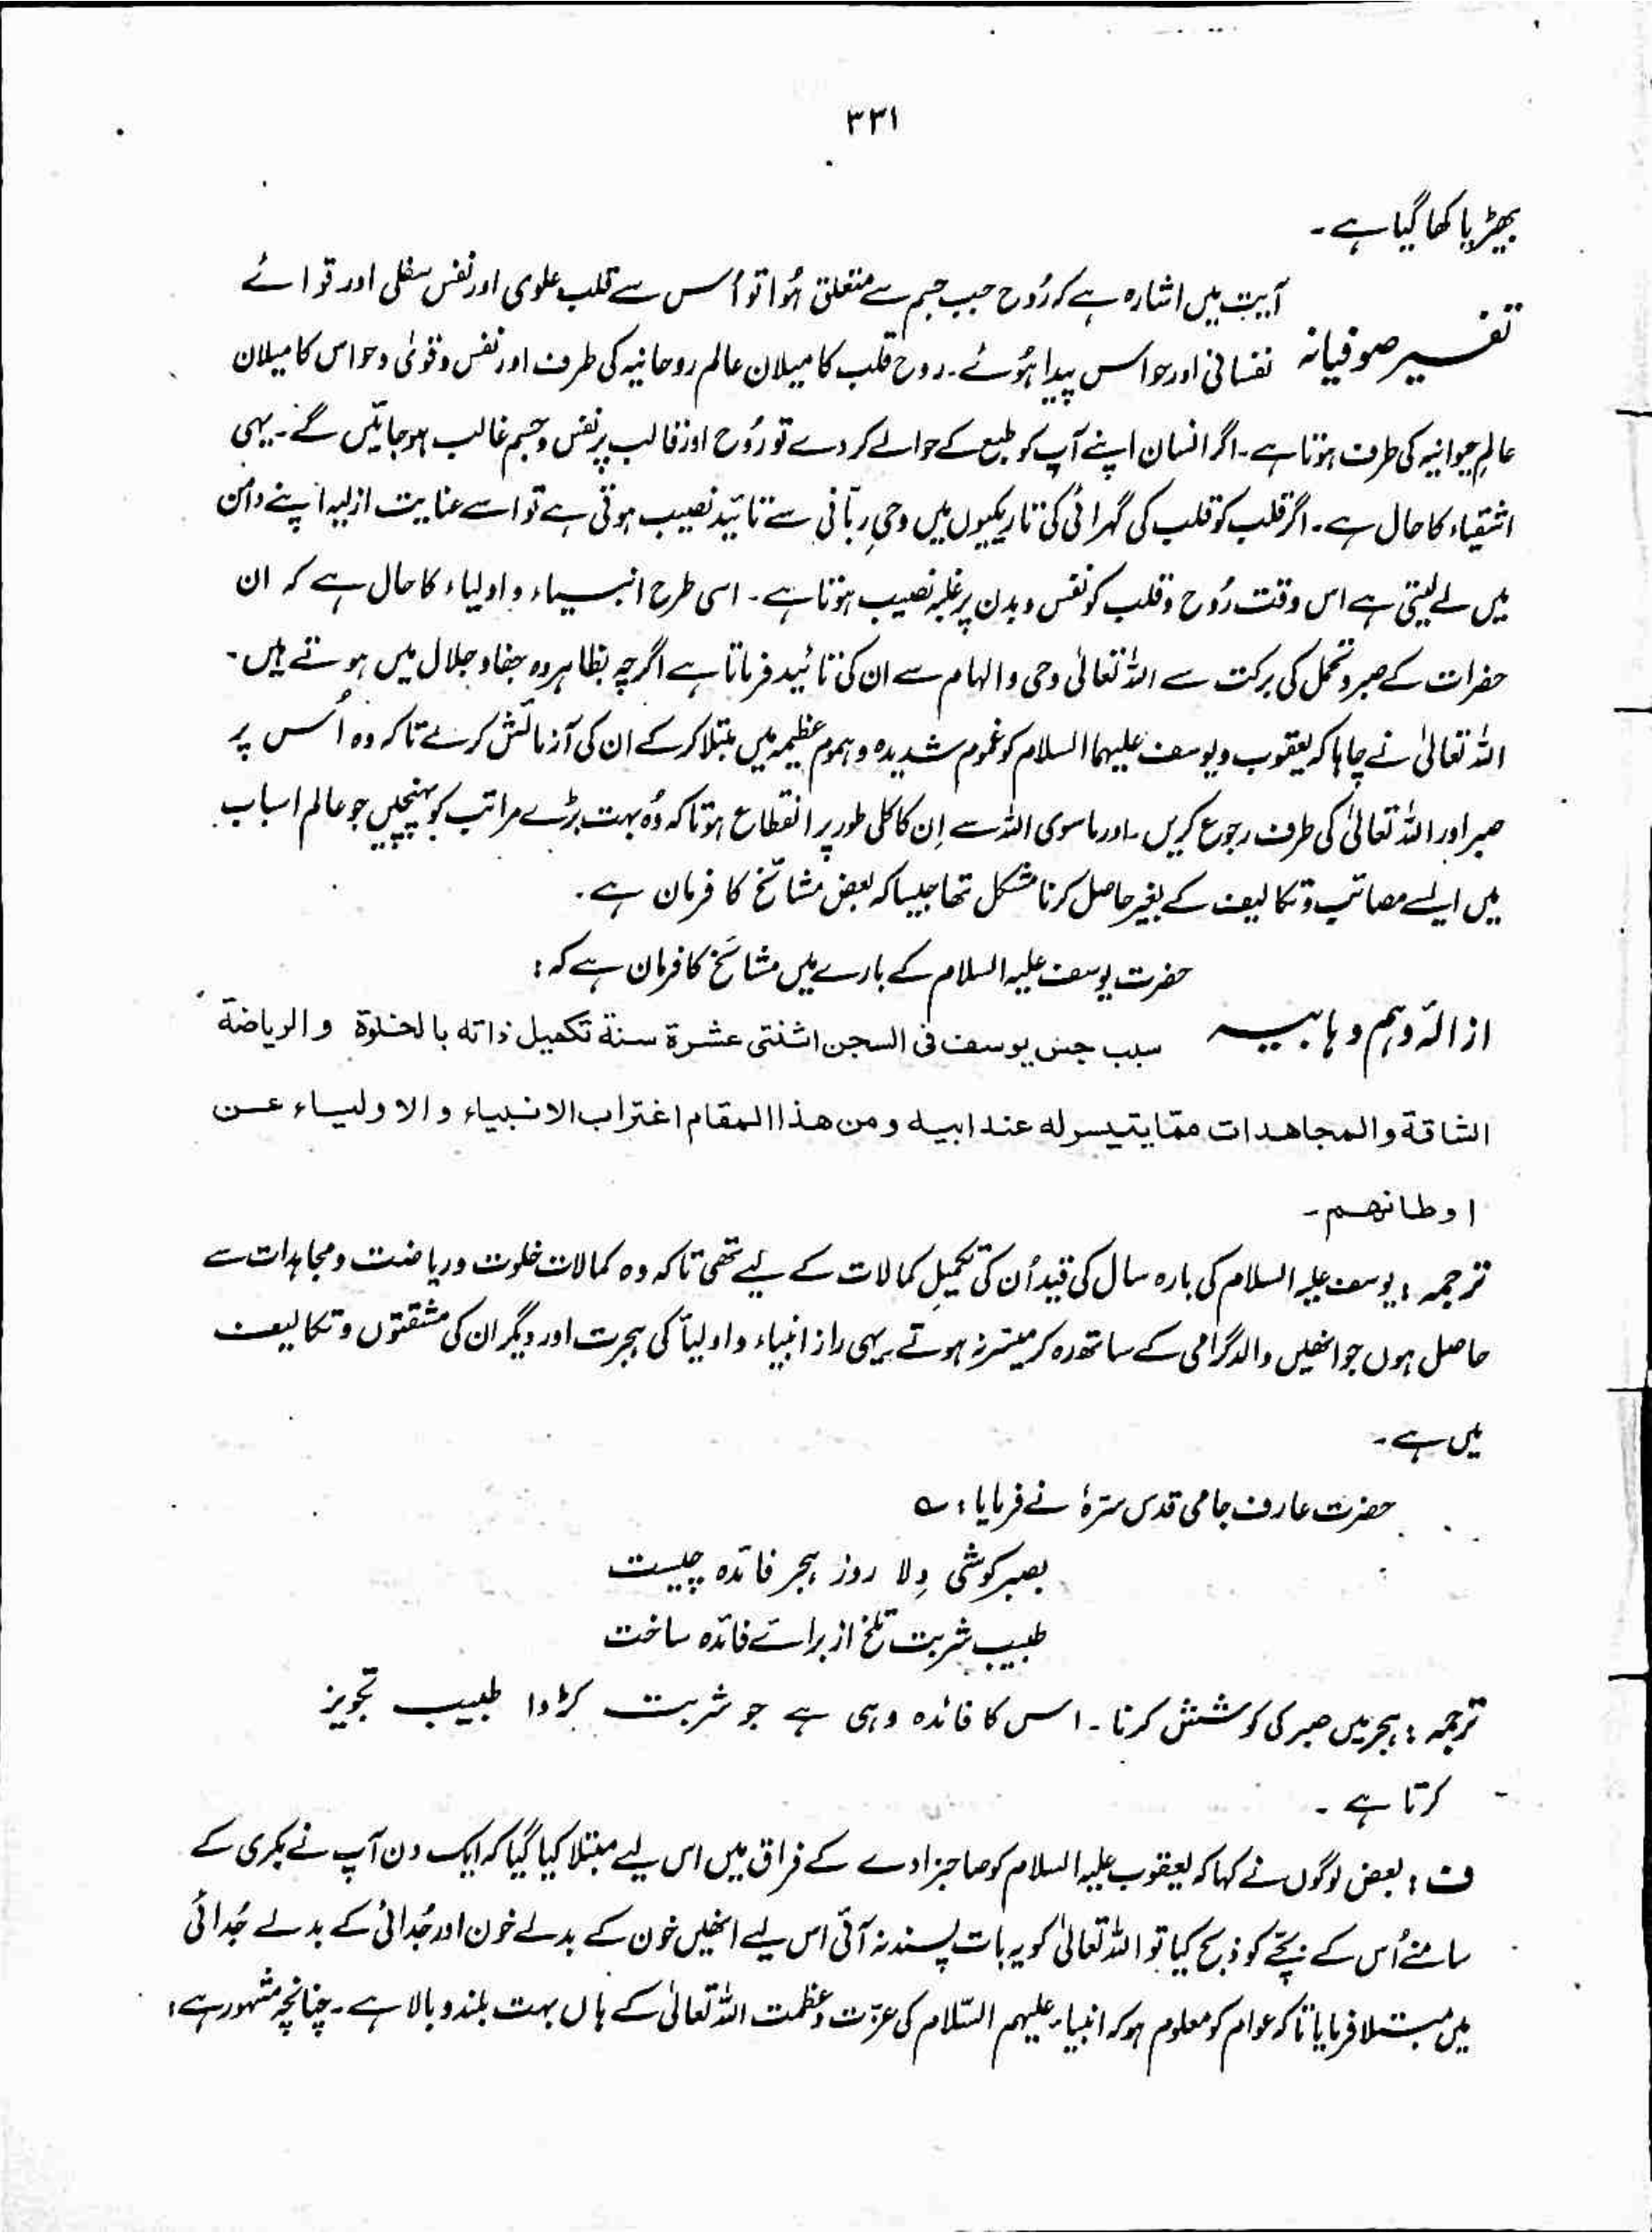 ۳۳۱
بھیڑیا کھا گیا ہے۔
آیت میں اشارہ ہے کہ رُوح جب جسم سے متعلق ہُوا تو اُس سے قلب علوی اور نفس سفلی اور قوائے
تفسیر صوفیانہ نفسانی اور حواس پیدا ہُوئے۔ روح قلب کا میلان عالم روحانیہ کی طرف اور نفس و قویٰ و حواس کا میلان
عالم حیوانیہ کی طرف ہوتا ہے۔ اگر انسان اپنے آپ کو طبع کے حوالے کر دے تو رُوح اور قالب پر نفس و جسم غالب ہو جائیں گے۔ یہی
اشقیاء کا حال ہے۔ اگر قلب کو قلب کی گہرائی کی تاریکیوں میں وحیِ ربّانی سے تائید نصیب ہوتی ہے تو اسے عنایت ازلیہ اپنے دامن
میں لے لیتی ہے اس وقت رُوح و قلب کو نفس و بدن پر غلبہ نصیب ہوتا ہے۔ اسی طرح انبیاء و اولیاء کا حال ہے کہ ان
حضرات کے صبر و تحمل کی برکت سے اللہ تعالیٰ وحی و الہام سے ان کی تائید فرماتا ہے اگرچہ بظاہر وہ جفا و جلال میں ہوتے ہیں۔
اللہ تعالیٰ نے چاہا کہ یعقوب و یوسف علیہما السلام کو غموم شدیدہ و ہموم عظیمہ میں مبتلا کر کے ان کی آزمائش کرے تاکہ وہ اُس پر
صبر اور اللہ تعالیٰ کی طرف رجوع کریں۔ اور ماسوی اللہ سے اِن کا کلی طور پر انقطاع ہو تاکہ وُہ بہت بڑے مراتب کو پہنچیں جو عالم اسباب
میں ایسے مصائب و تکالیف کے بغیر حاصل کرنا مشکل تھا جیسا کہ بعض مشائخ کا فرمان ہے۔
حضرت یوسف علیہ السلام کے بارے میں مشائخ کا فرمان ہے کہ:
ازالۂ وہم وہابیہ سبب حبس یوسف فی السجن اثنتی عشرة سنة تکمیل ذاته بالخلوة والریاضة
الشاقة والمجاهدات ممّا یتیسر له عند ابیه ومن هذا المقام اغتراب الانبیاء والاولیاء عن
اوطانهم۔
ترجمہ: یوسف علیہ السلام کی بارہ سال کی قید اُن کی تکمیلِ کمالات کے لیے تھی تاکہ وہ کمالات خلوت و ریاضت و مجاہدات سے
حاصل ہوں جو انھیں والد گرامی کے ساتھ رہ کر میسّر نہ ہوتے یہی راز انبیاء و اولیاؑ کی ہجرت اور دیگر ان کی مشقتوں و تکالیف
میں ہے۔
حضرت عارف جامی قدس سرّہٗ نے فرمایا: ؎
بصبر کوشی دِلا روز ہجر فائدہ چیست
طبیب شربت تلخ از برائے فائدہ ساخت
ترجمہ: ہجر میں صبر کی کوشش کرنا۔ اس کا فائدہ وہی ہے جو شربت کڑوا طبیب تجویز
کرتا ہے۔
ف: بعض لوگوں نے کہا کہ یعقوب علیہ السلام کو صاحبزادے کے فراق میں اس لیے مبتلا کیا گیا کہ ایک دن آپ نے بکری کے
سامنے اُس کے بچّے کو ذبح کیا تو اللہ تعالیٰ کو یہ بات پسند نہ آئی اس لیے انھیں خون کے بدلے خون اور جُدائی کے بدلے جُدائی
میں مبتلا فرمایا تاکہ عوام کو معلوم ہو کہ انبیاء علیہم السّلام کی عزّت و عظمت اللہ تعالیٰ کے ہاں بہت بلند و بالا ہے۔ چنانچہ مشہور ہے: